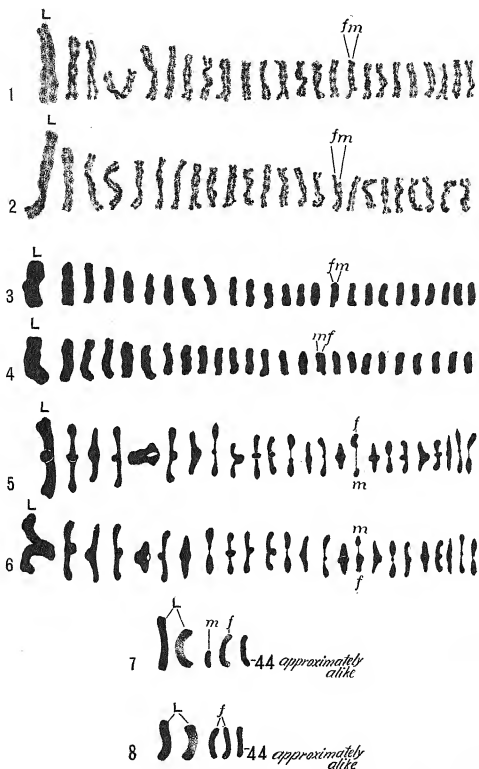 L
fm
1
L
fm
2
L
fm
3
L
mf
4
L
f
5
m
L
m
6
f
L
m f
7
44 approximately alike
L
f
8
44 approximately alike